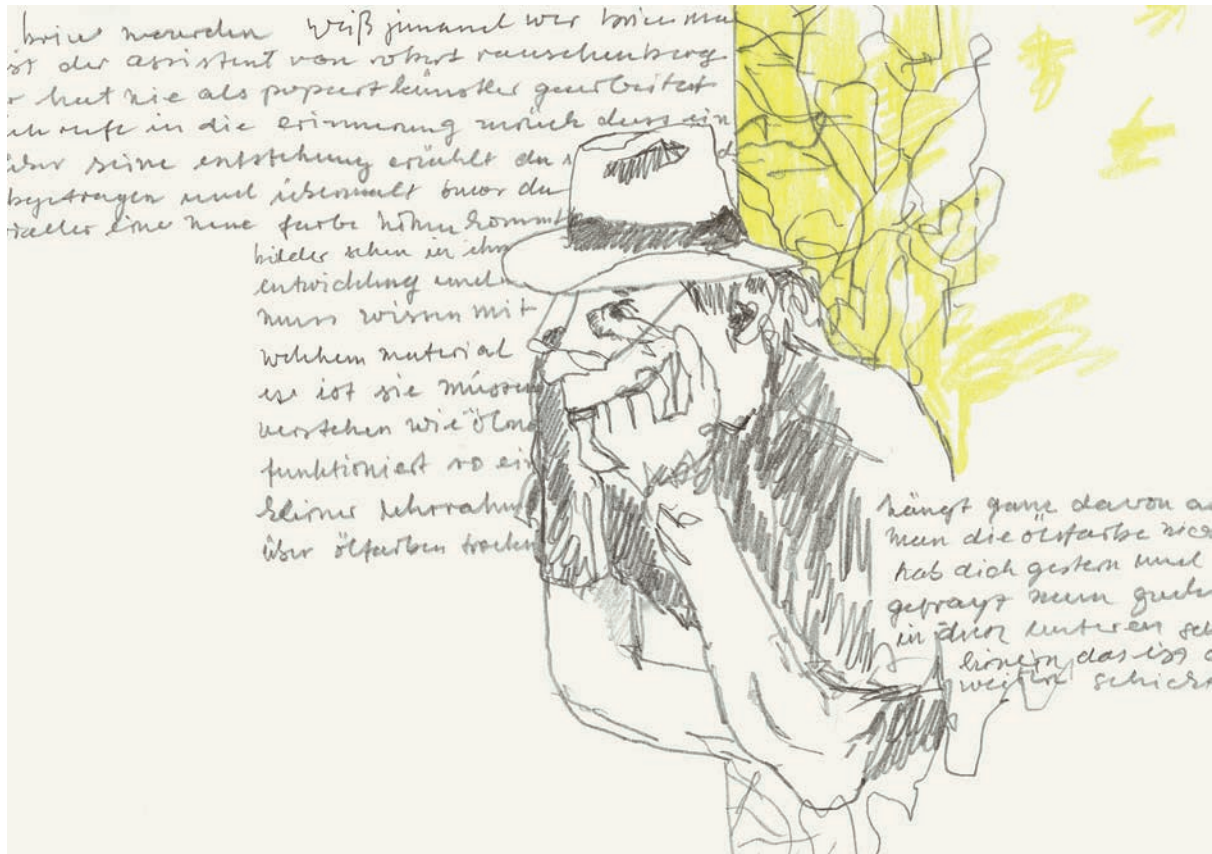 brice maurden weiß jemand wer brice ma
ist der assistent von robert rauschenberg
r hat nie als popart künstler gearbeitet
ich rufe in die erinnerung zurück dass ein
über seine entstehung erzählt da
bgetragen und übermalt bevor du
eine neue farbe hinzu kommt
bilder sehen in ihr
entwicklung und
muss wissen mit
welchem material
es ist sie müssen
verstehen wie ölma
funktioniert so ein
kleiner lehrrahm
über ölfarben trocken
hängt ganz davon a
man die ölfarbe nic
hab dich gestern und
gefragt
in den unteren sch
das ist
weitere schicht